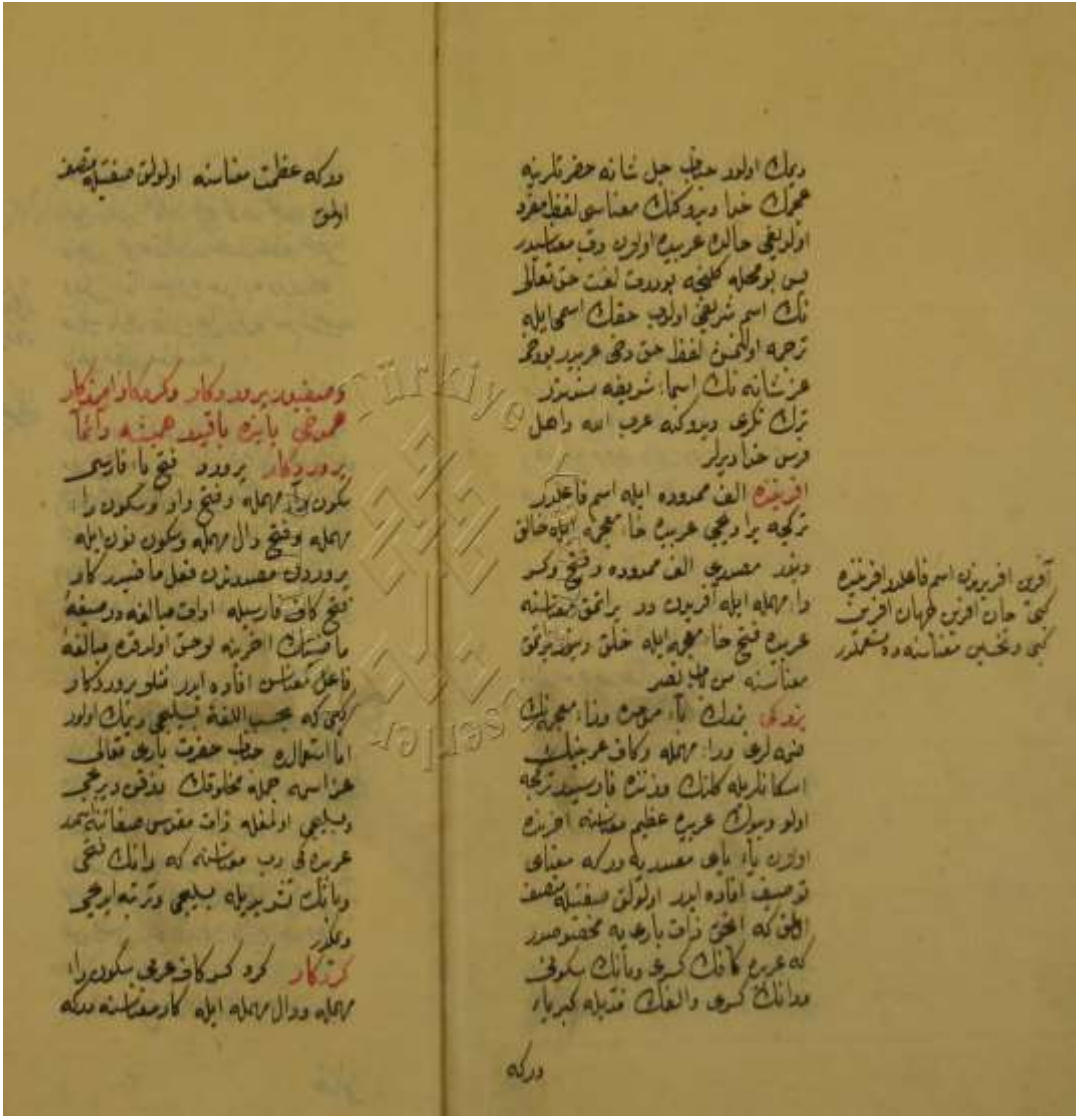 ديمك اولور جناب جل شانه حضرتلرينه
عجمك خدا ديدوكنك معناسى لفظ مفرد
اولديغى حالده عربيده اولان رب معناسيدر
پس بو محله كلنجه بودرت لغت حق تعالى
نك اسم شريفى اولوب حقك اسمى ايله
ترجمه اولنمش لفظ حق دخى عربيدر بودخى
عز شانه نك اسماء شريفه سندندر
ترك تكرى ديدوكنه عرب الله و اهل
فرس خدا ديرلر
افريننده الف ممدوده ايله اسم فاعلدر
تركيجه يراديجى عربيده خاء معجمه ايله خالق
دينور مصدرى الف ممدوده و فتح و كسر
راء مهمله ايله آفريدن در يراتمق معناسنه
عربيده فتح خاء معجمه ايله خلق
معناسنه من باب نصر
بزركى بزرك باء موحده و زاء معجمه نك
ضمه لرى و راء مهمله و كاف عربينك
اسكانلريله كلنك وزننده فارسيدر تركيجه
اولو و بيوك عربيده عظيم معناسنه اخرنده
اولان ياء ياى مصدريه در كه معناى
توصيف افاده ايدر اولولق صفتيله متصف
اولمق كه انجق ذات بارى يه مخصوصدر
كه عربيده كافك كسرى و بانك سكونى
و رانك كسرى و الفك مديله كبرياء
در كه
آفرين افريدن اسم فاعلدر افريننده
كبى جان افرين و جهان افرين
كبى و تحسين معناسنه ده مستعملدر
در كه عظمت معناسنه اولولق صفتيله متصف
اولمق
وصفيدر پروردكار و كردكار و امرزكار
هموخى پاينده باقيدر هميشه دائما
پروردكار پرورد فتح باء فارسى
سكون راء مهمله و فتح واو و سكون راء
مهمله و فتح دال مهمله و سكون نون ايله
پروردن مصدرندن فعل ماضيدر كار
فتح كاف فارسيله ادات مبالغه در صيغه
ماضينك اخرينه لوحق اولدقده مبالغه
فاعل معناسن افاده ايدر مثلا پروردكار
كبى كه بحسب اللغة بسليجى ديمك اولور
اما استعمالده جناب حضرت بارى تعالى
عز اسمه جمله مخلوقك رزقن ويريجى
و بسليجى اولمغله ذات مقدس صفاتنه اسمدر
عربيده كى رب معناسنه كه رانك فتحى
و بانك تشديديله بسليجى و تربيه ايديجى
ديمكدر
كردكار كرد كسر كاف عربى سكون راء
مهمله و دال مهمله ايله كار معناسنه در كه